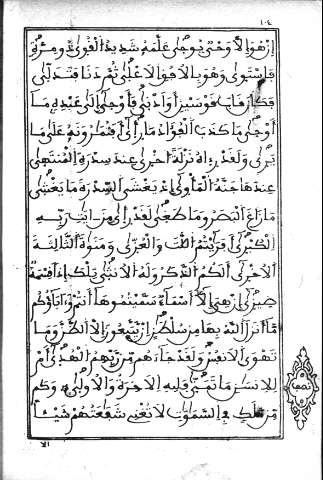 ١٠٤
إن هو إلا وحى يوحى علمه شديد القوى ذو مرة
فاستوى وهو بالأفق الأعلى ثم دنا فتدلى
فكان قاب قوسين أو أدنى فأوحى إلى عبده ما
أوحى ما كذب الفؤاد ما رأى أفتمرونه على ما
يرى ولقد رءاه نزلة اخرى عند سدرة المنتهى
عندها جنة المأوى إذ يغشى السدرة ما يغشى
ما زاغ البصر وما طغى لقد رأى من ايت ربه
الكبرى أفرأيتم اللت والعزى ومنوة الثالثة
الأخرى ألكم الذكر وله الأنثى تلك إذا قسمة
ضيزى إن هى إلا أسماء سميتموها أنتم وءاباؤكم
ما أنزل الله بها من سلطن إن يتبعون إلا الظن وما
تهوى الأنفس ولقد جاءهم من ربهم الهدى أم
للإنسن ما تمنى فلله الأخرة والأولى وكم
من ملك في السموت لا تغنى شفعتهم شيئا
نصف
الا